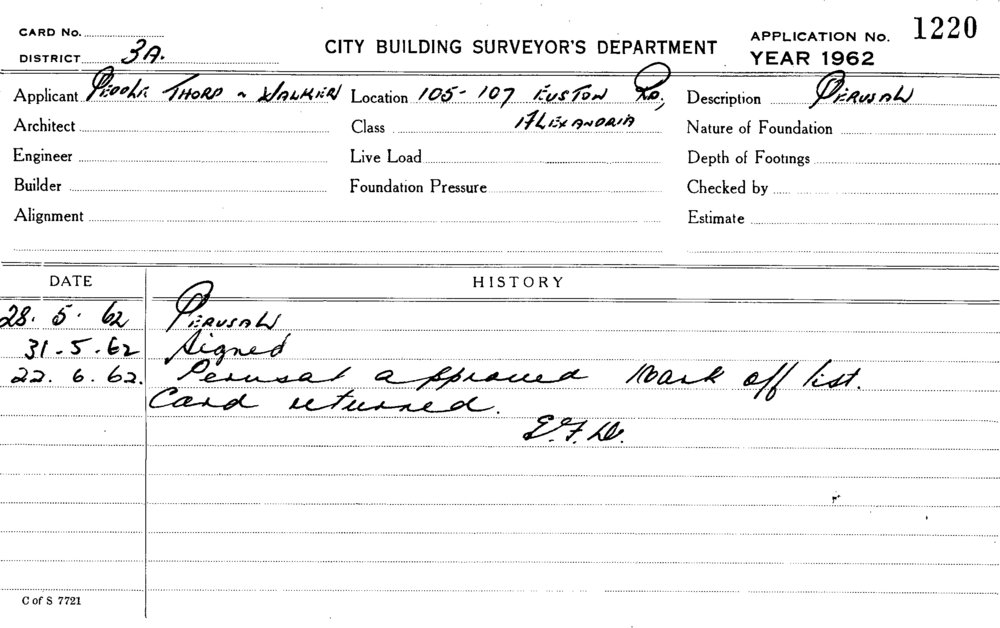 CARD No.
DISTRICT 3A.
CITY BUILDING SURVEYOR'S DEPARTMENT
APPLICATION No. 1220
YEAR 1962
Applicant Peddle Thorp & Walker Location 105-107 Euston Rd, Description Perusal
Architect Class Alexandria Nature of Foundation
Engineer Live Load Depth of Footings
Builder Foundation Pressure Checked by
Alignment Estimate
DATE HISTORY
28. 5. 62 Perusal
31-5.62 Signed
22. 6. 62. Perusal approved Mark off list.
Card returned.
E.F.D.
C of S 7721